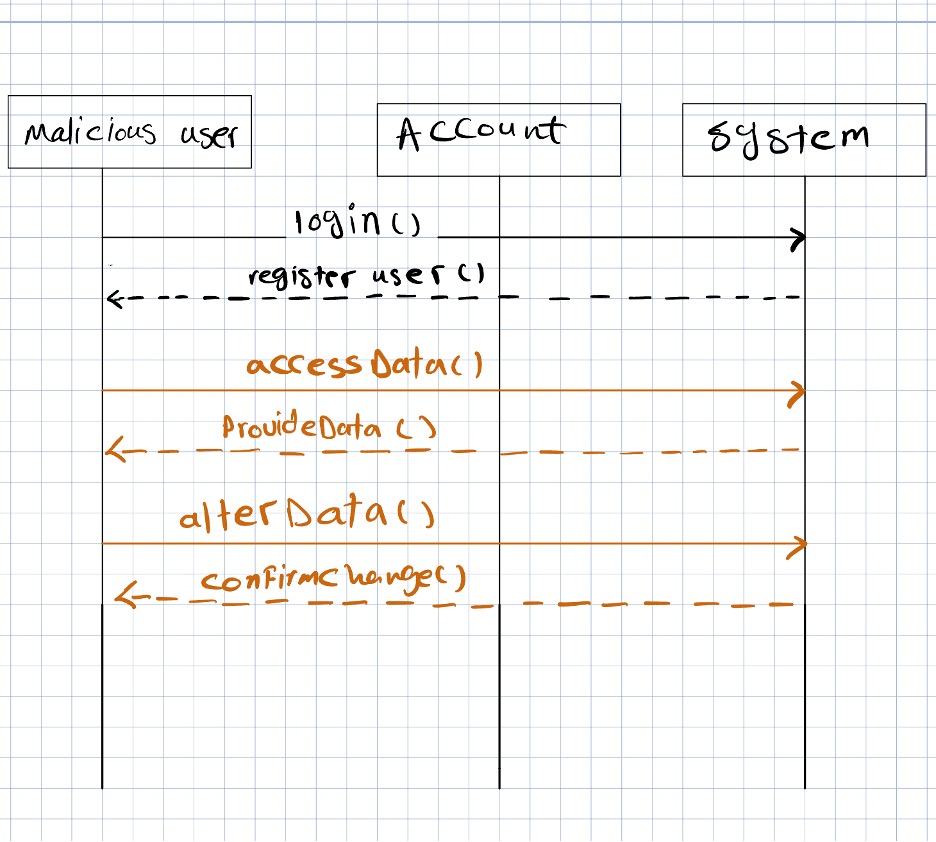 Malicious user
Account
System
login()
register user()
accessData()
ProvideData()
alterData()
confirmchange()